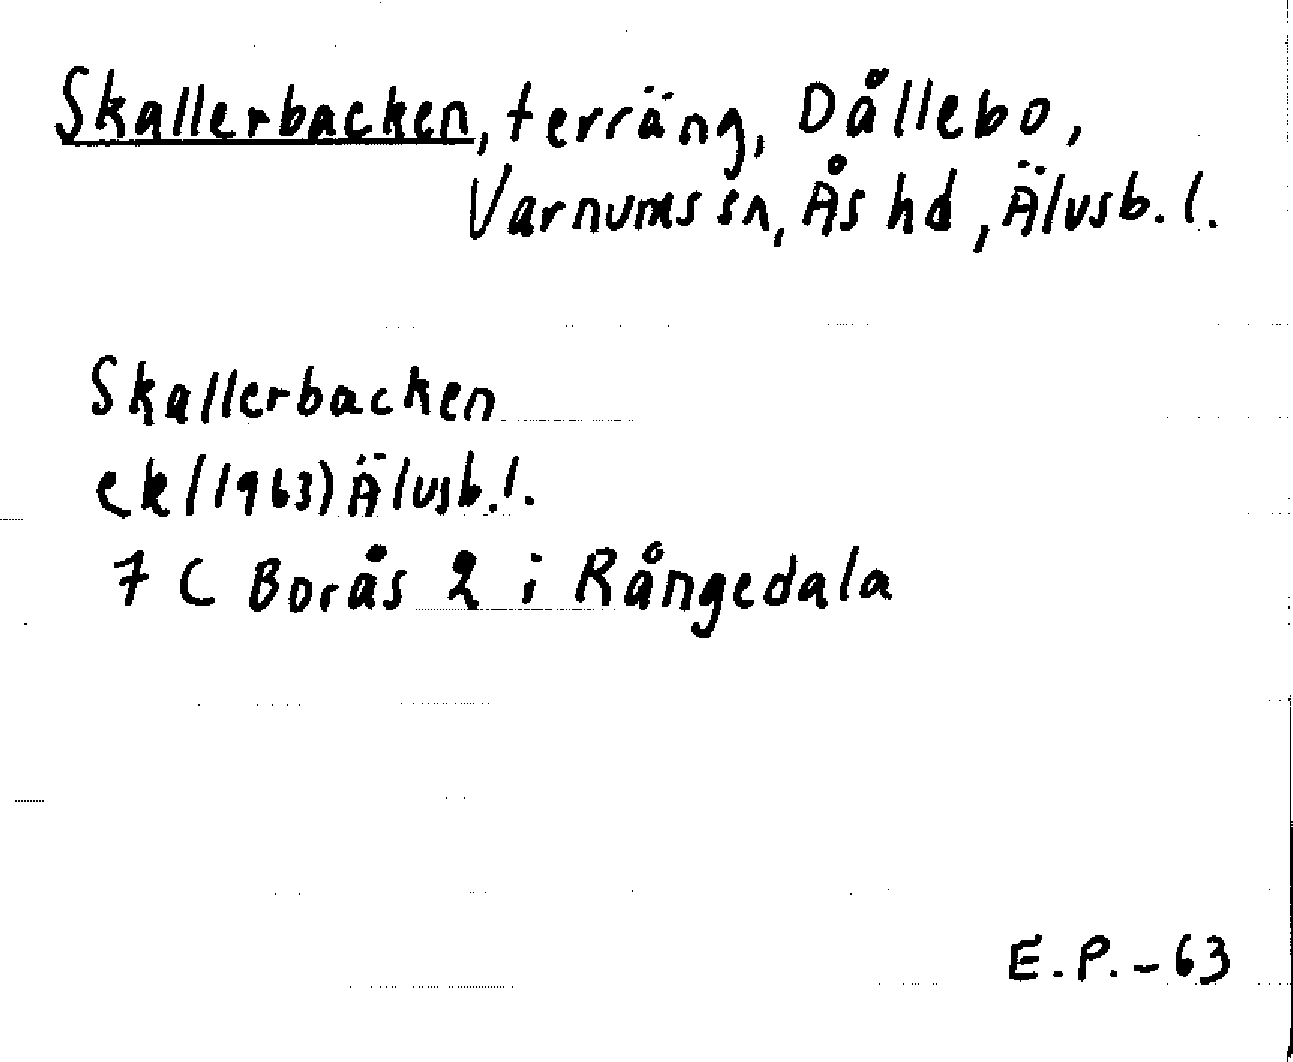 Skallerbacken, terräng, Dållebo,
Varnums sn, Ås hd, Älvsb. l.
Skallerbacken
ek (1963) Älvsb. l.
7 C Borås 2 i Rångedala
E. P. - 63